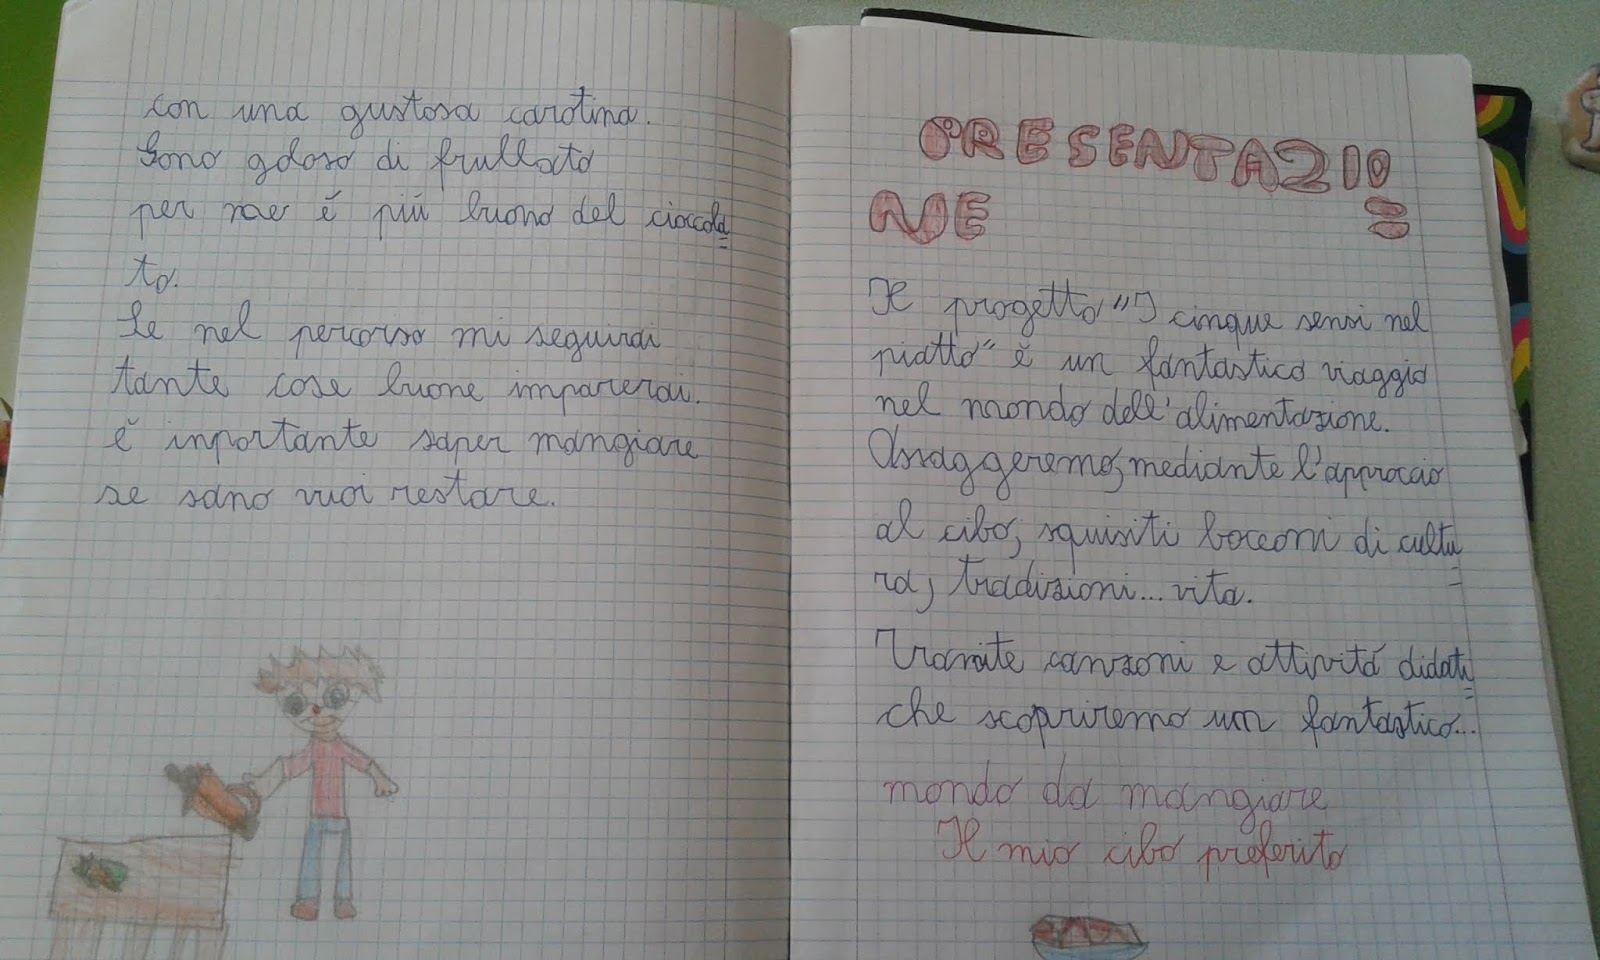 con una gustosa carotina.
Sono goloso di frullato
per me é piú buono del cioccola
to.
Se nel percorso mi seguirai
tante cose buone imparerai.
é inportante saper mangiare
se sano vuoi restare.
PRESENTAZIO
NE
Il progetto "I cinque sensi nel
piatto" é un fantastico viaggio
nel mondo dell'alimentazione.
Assaggeremo, mediante l'approcio
al cibo, squisiti bocconi di cultu
ra, tradizioni... vita.
Tramite canzoni e attivitá didati
che scopriremo un fantastico...
mondo da mangiare
Il mio cibo preferito